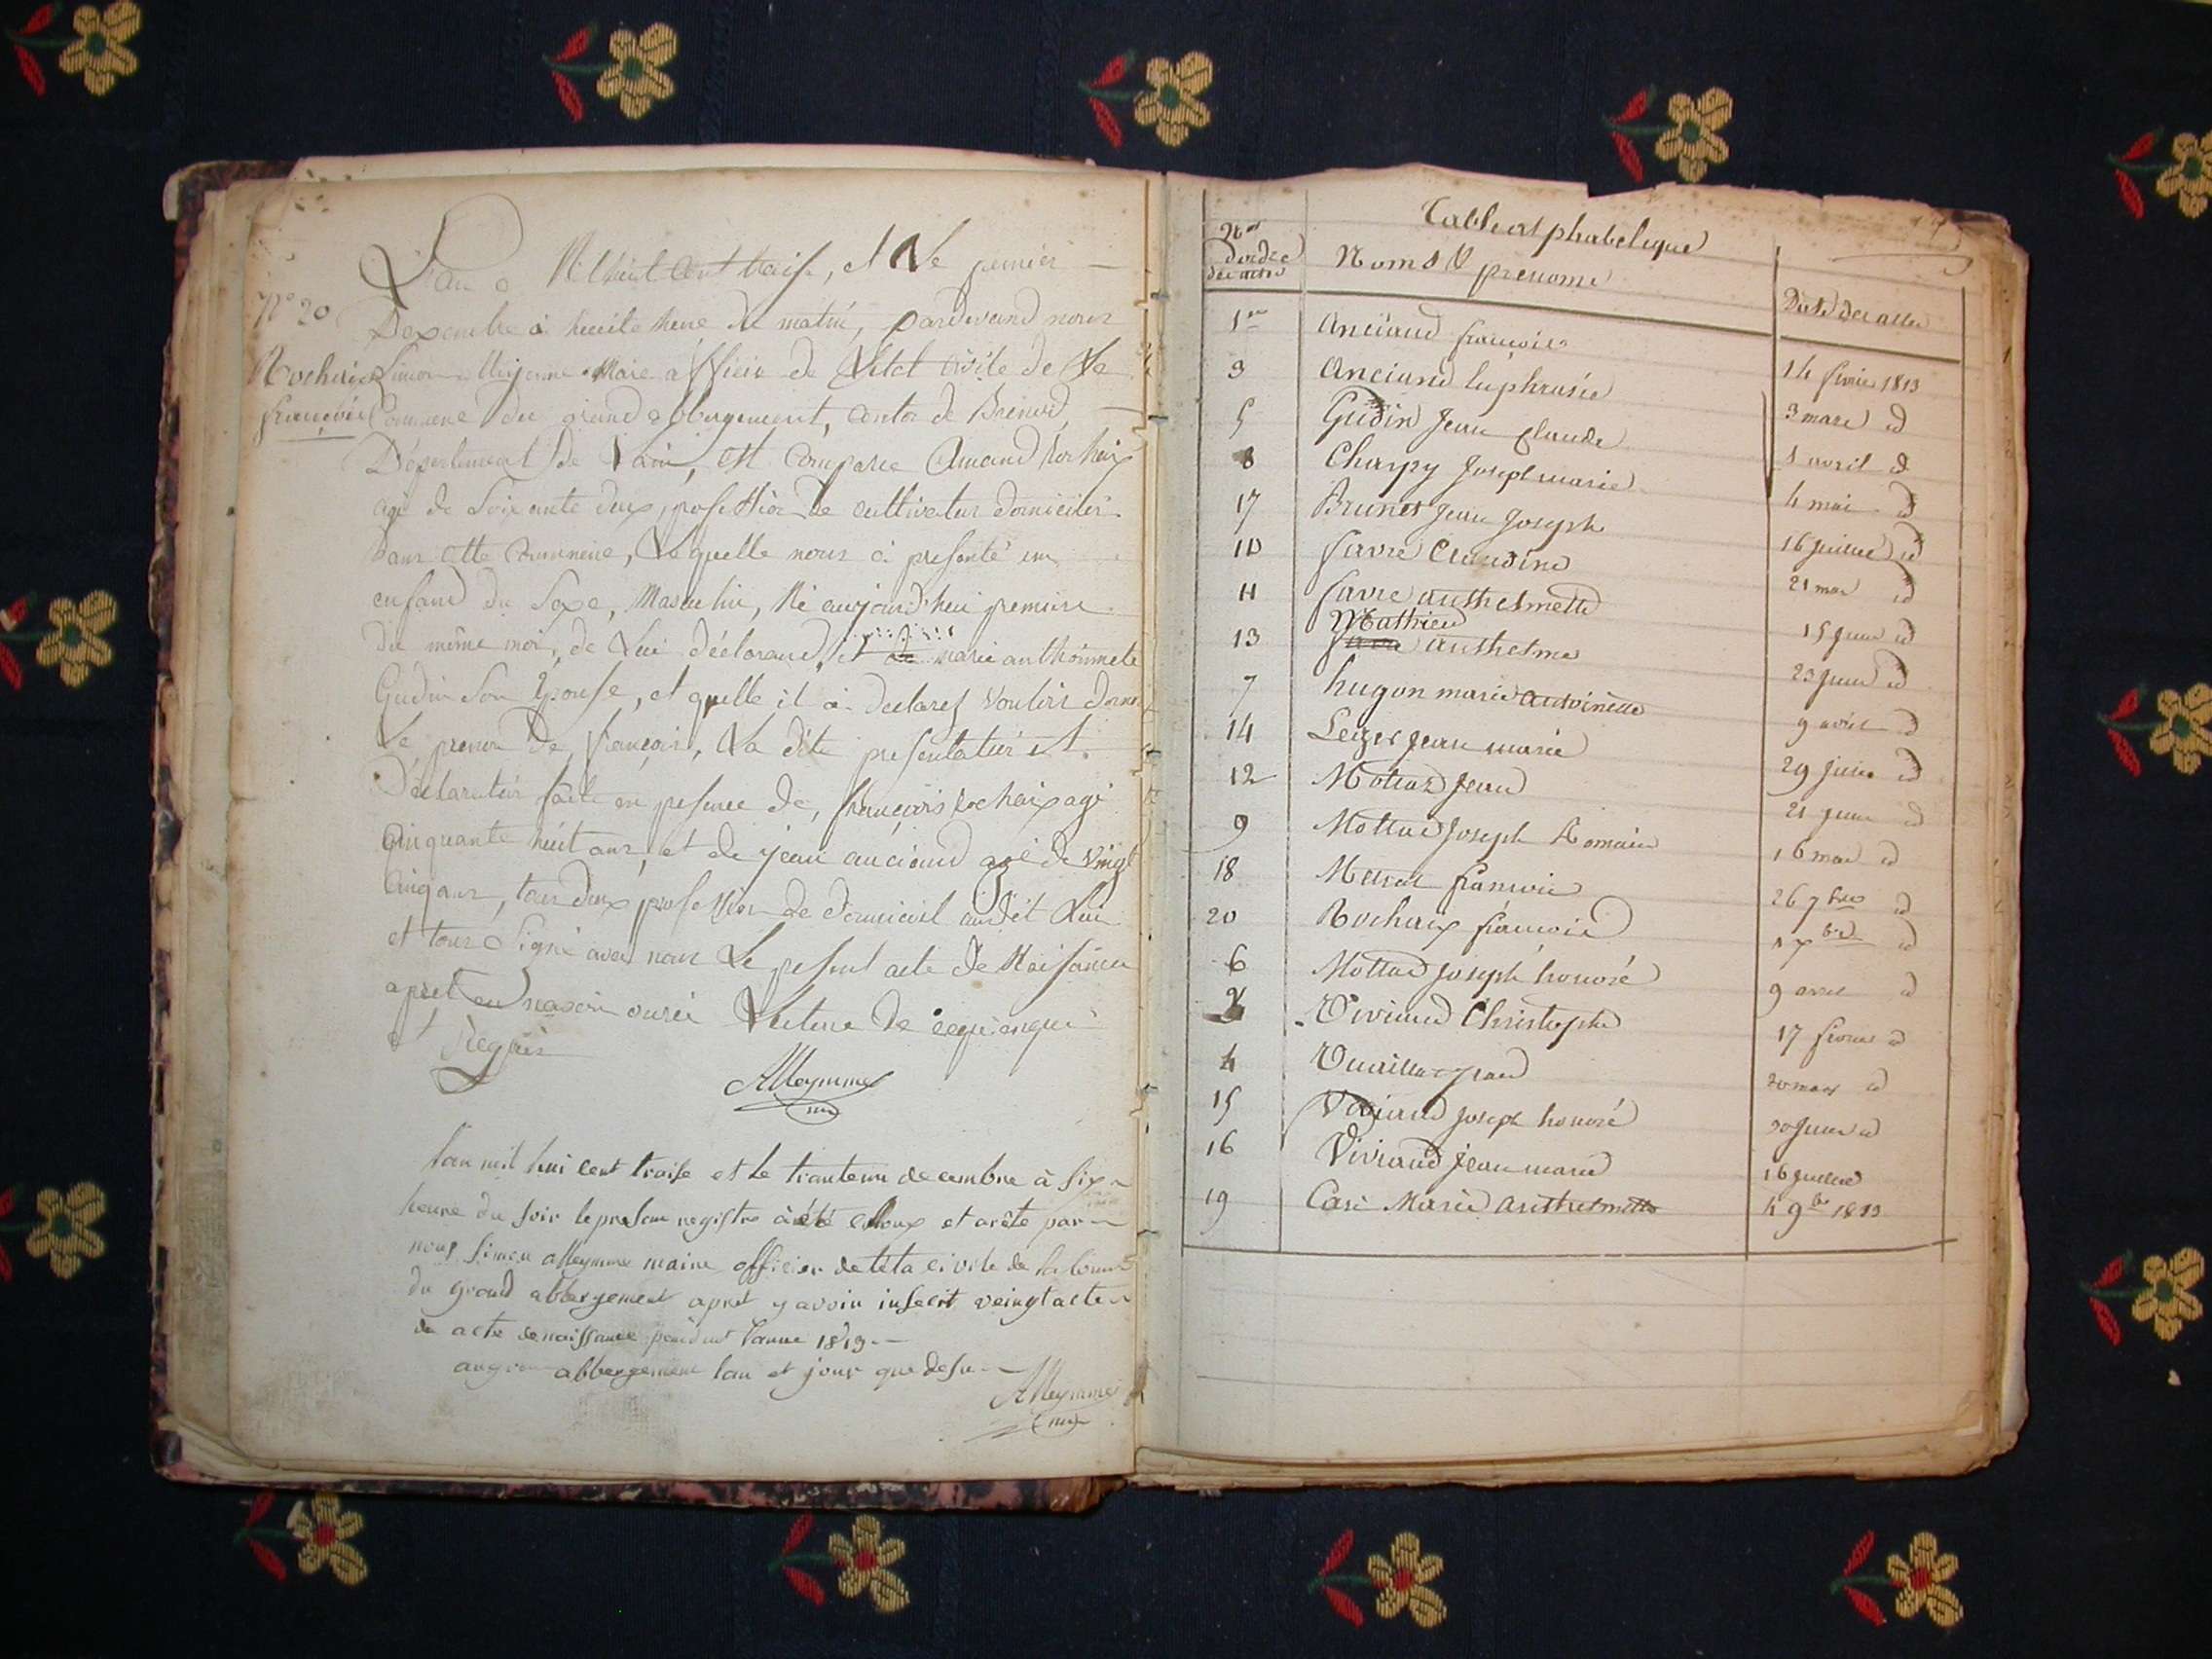 N° 20
Rochaix
françois
L'an Mil huit Cent traise, et Le premier
Dexembre à heuite heure du matin, pardevand nous
Simon Alleymme Maire officier de l'étet civile de Le
Commune du grand abbergement, Canton de Brénod,
Département de l'ain, est Comparue Amand Rochaix
agé de Soixante deux, profession de cultivateur domicilié
dans cette Commune, Lequelle nous à présenté un
enfand du Sexe, Masculin, Né aujourd'hui premiere
du même moi, de Lui déclarand, et de marie anthoinnete
Gudin Son Epouse, et quelle il à declarés vouloir donner
Le prenom De françois, La dite présentatiér et
Déclaratiér faite en présence de, françois Rochaix agé
Cinquante huit ans, et de jean anciand agé de vingt
Cinq ans, tous deux profession de domicil audit Lieu
et tous Signé avec nous Le présent acte de Naisance
apret en avoir
Lecture de
et Requis
Alleymme
lan mil hui cent traise et le trantenn decembre à six
heure du soir le presan registre à été cloux et arête par
nous simon alleymme maire officier de léta civile de la comm
du grand abbergement apret y avoir inscrit veingt acte
de acte de naissance pendent lanne 1813
au gran abbergement lan et jour que desu
Alleymme
Table alphabetique
Nos d'ordre des actes
Noms & prenoms
Date des actes
1er Anciand francois 14 fevrier 1813
3 Anciand Euphrasie 3 mars id
5 Gudin Jean Claude 1 avril id
8 Charpy Joseph marie 4 mai id
17 Brunet Jean Joseph 16 Juillet id
10 favre Claudine 21 mai id
11 favre anthelmette 15 Juin id
Mathieu
13 favre anthelme 23 Juin id
7 hugon marie antoinette 9 avril id
14 Leger Jean marie 29 Juin id
12 Mottaz Jean 21 Juin id
9 Mottaz Joseph Romain 16 mai id
18 Mermet francois 26 7bre id
20 Rochaix francois 1 xbre id
6 Mottaz Joseph honoré 9 avril id
2 Viviand Christophe 17 fevrier id
4 Vuaillat Jean 20 mars id
15 Viviand Joseph honoré 30 Juin id
16 Viviand Jean marie 16 Juillet
19 Cari Marie anthelmette 4 9bre 1813